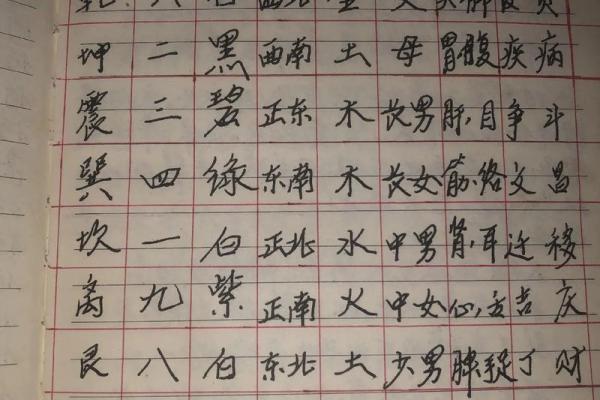 六白西北金父
坤二黑西南土母胃腹疾病
震三碧正东木长男肝,目争斗
巽四绿东南木长女筋络文昌
坎一白正北水中男肾,耳迁移
离九紫正南火中女心,舌吉庆
艮八白东北土少男脾丁财